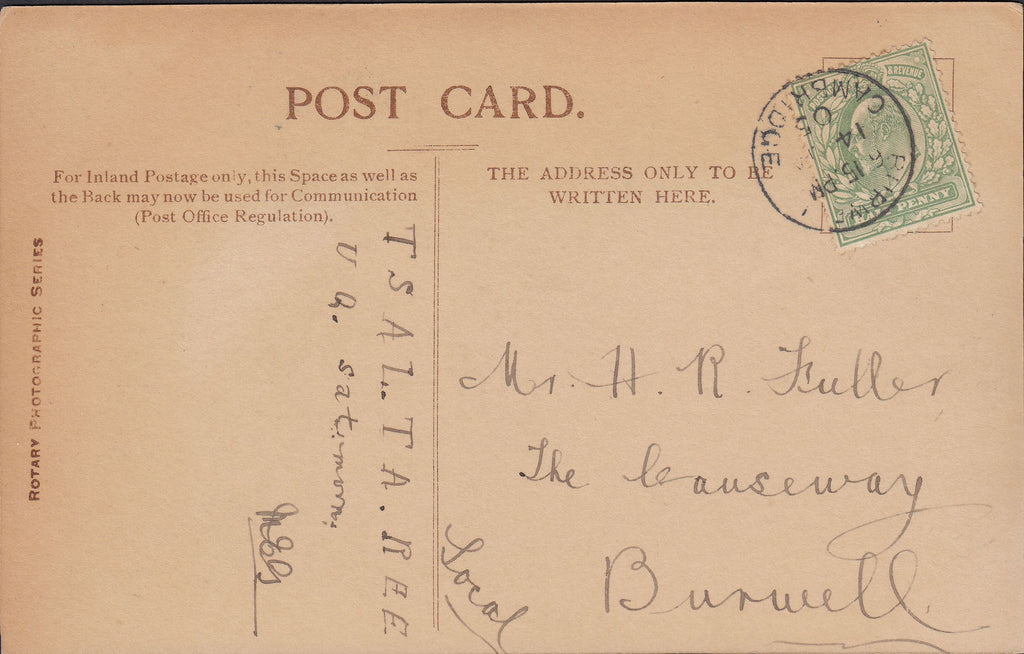 POST CARD.
For Inland Postage only, this Space as well as
the Back may now be used for Communication
(Post Office Regulation).
THE ADDRESS ONLY TO BE
WRITTEN HERE.
ROTARY PHOTOGRAPHIC SERIES
& REVENUE
PENNY
CAMBRIDGE
6.15 PM
14
05
T S A L. T A. R E E
sat: morn:
Local
Mr. H. R. Fuller
The Causeway
Burwell